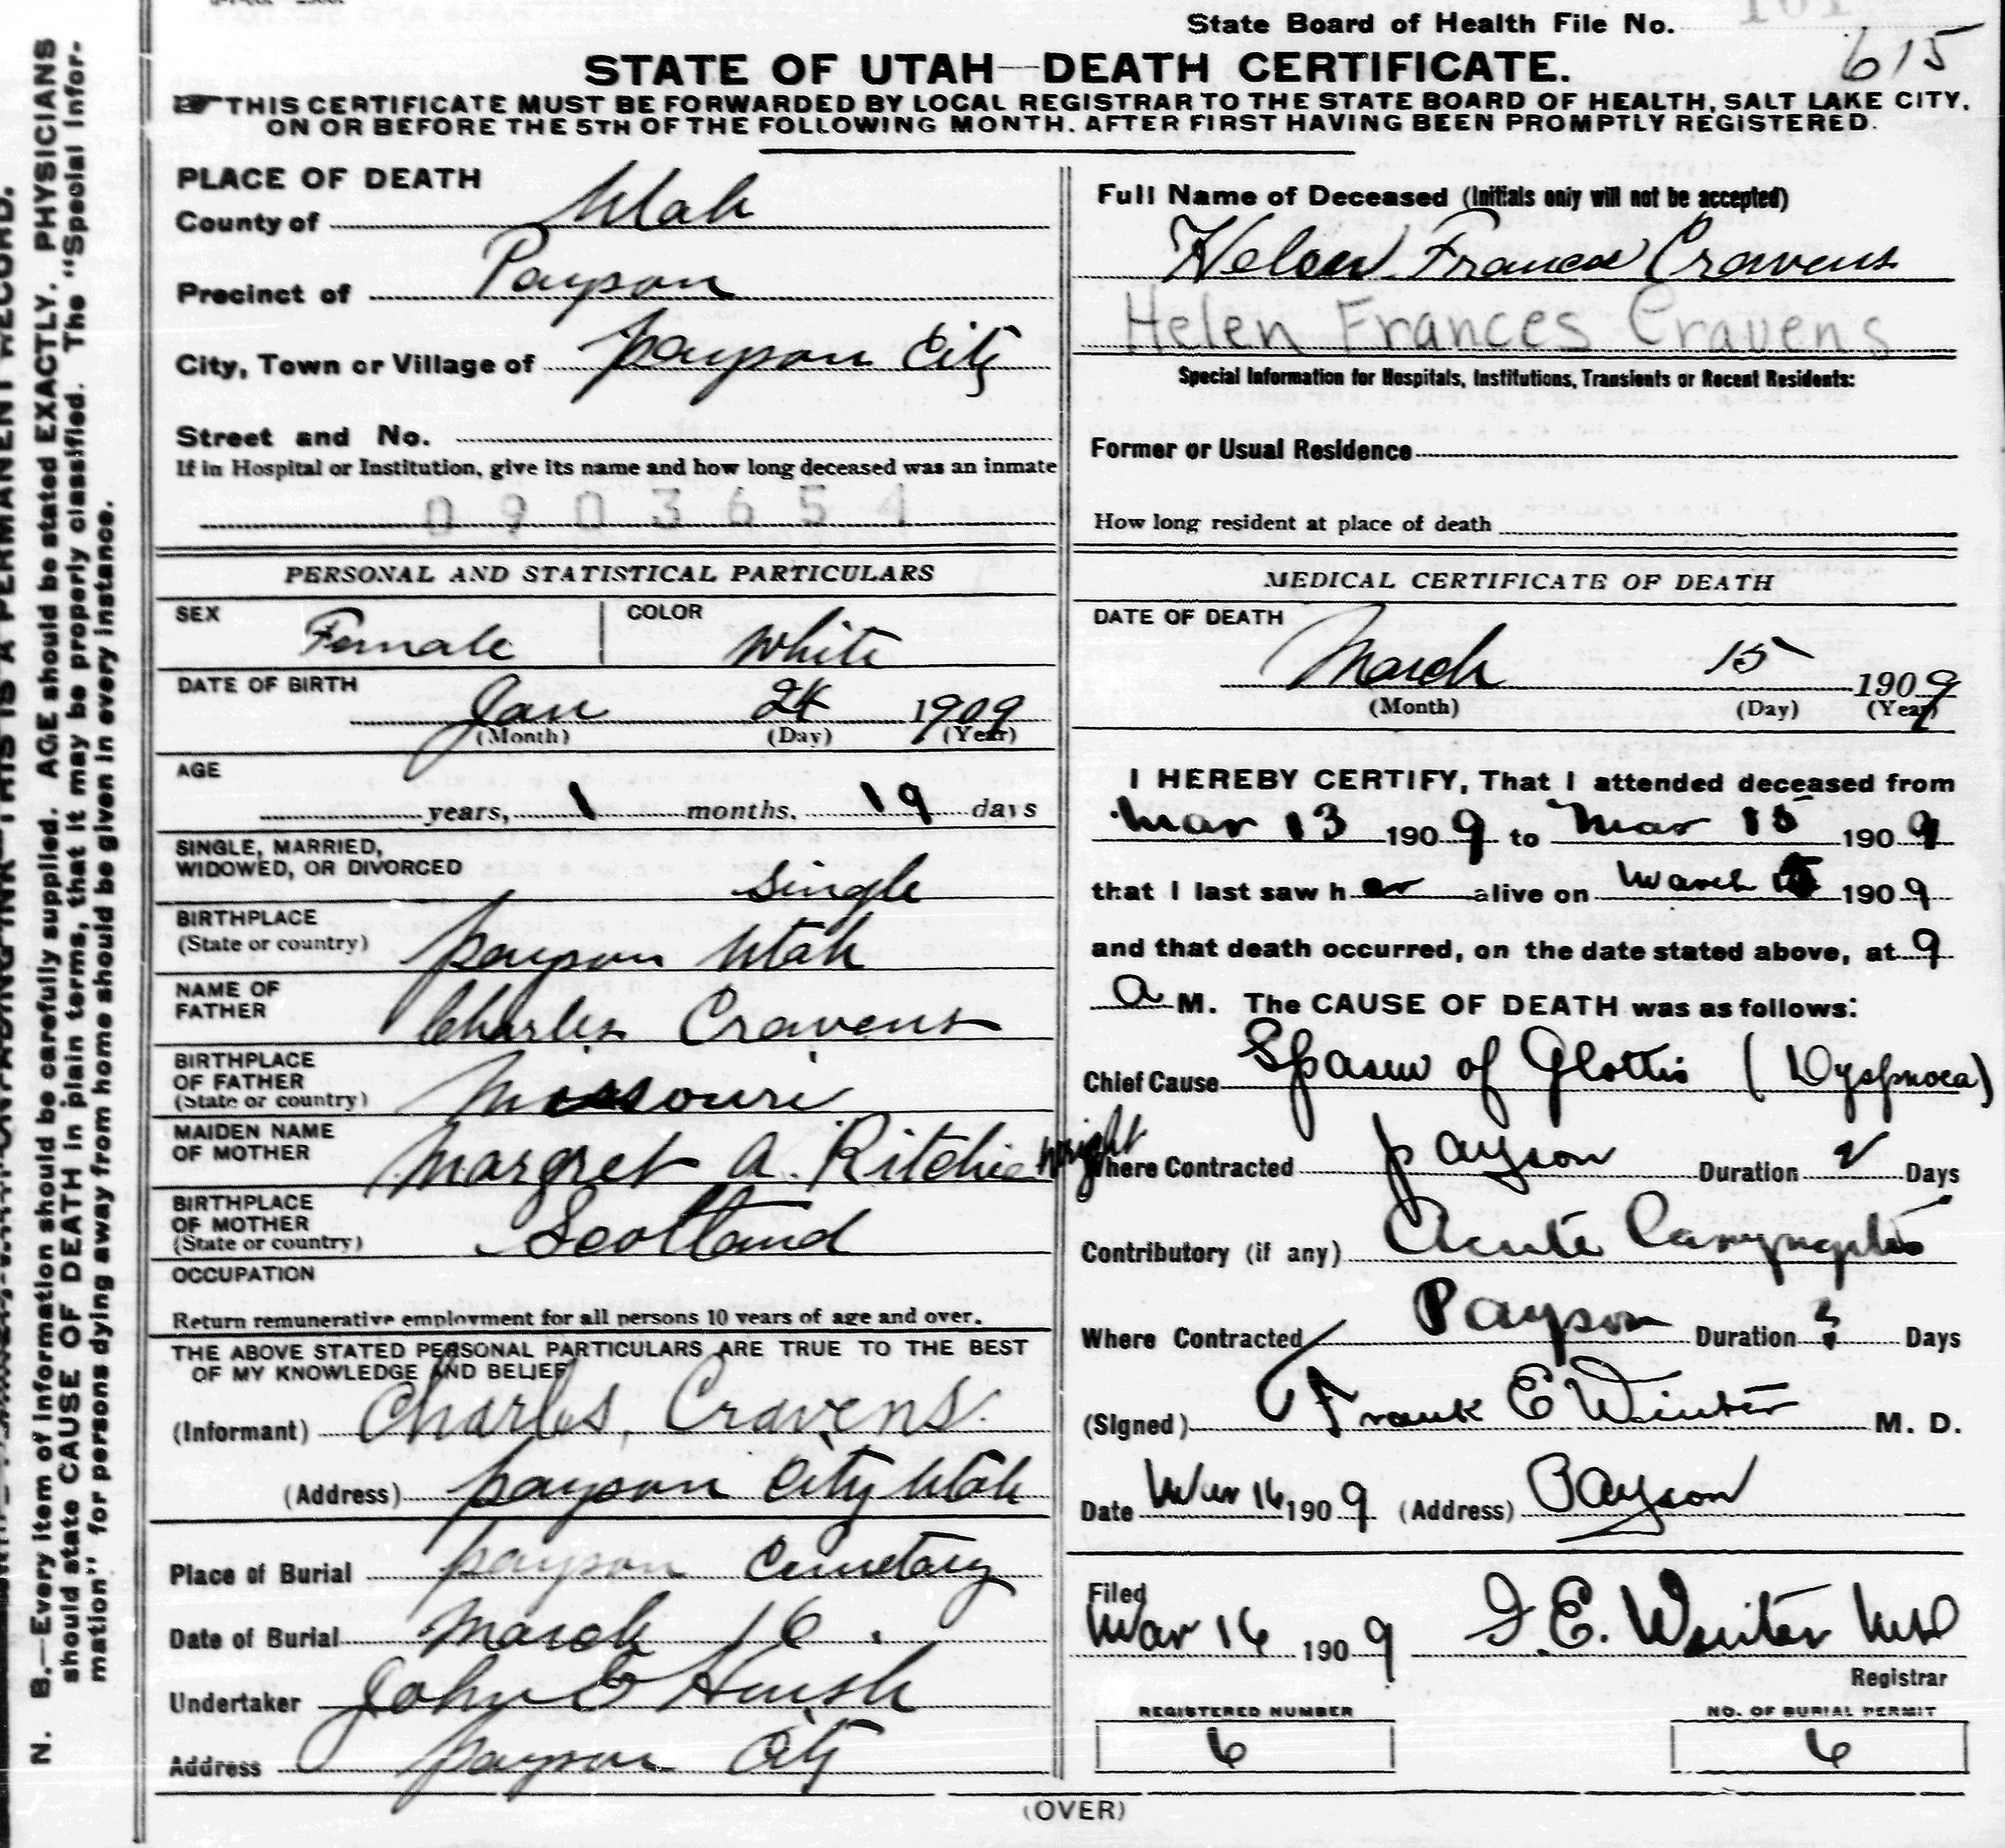 State Board of Health File No.
615
STATE OF UTAH—DEATH CERTIFICATE.
THIS CERTIFICATE MUST BE FORWARDED BY LOCAL REGISTRAR TO THE STATE BOARD OF HEALTH, SALT LAKE CITY,
ON OR BEFORE THE 5TH OF THE FOLLOWING MONTH. AFTER FIRST HAVING BEEN PROMPTLY REGISTERED.
N. B.—Every item of information should be carefully supplied. AGE should be stated EXACTLY. PHYSICIANS
should state CAUSE OF DEATH in plain terms, that it may be properly classified. The "Special Infor-
mation" for persons dying away from home should be given in every instance.
THIS IS A PERMANENT RECORD.
PLACE OF DEATH
County of Utah
Precinct of Payson
City, Town or Village of Payson City
Street and No.
If in Hospital or Institution, give its name and how long deceased was an inmate
0903654
PERSONAL AND STATISTICAL PARTICULARS
SEX Female COLOR White
DATE OF BIRTH
Jan 24 1909
(Month) (Day) (Year)
AGE
years, 1 months, 19 days
SINGLE, MARRIED,
WIDOWED, OR DIVORCED Single
BIRTHPLACE
(State or country) Payson Utah
NAME OF
FATHER Charles Cravens
BIRTHPLACE
OF FATHER
(State or country) Missouri
MAIDEN NAME
OF MOTHER Margret A. Ritchie Wright
BIRTHPLACE
OF MOTHER
(State or country) Scotland
OCCUPATION
Return remunerative employment for all persons 10 years of age and over.
THE ABOVE STATED PERSONAL PARTICULARS ARE TRUE TO THE BEST
OF MY KNOWLEDGE AND BELIEF
(Informant) Charles Cravens.
(Address) Payson City Utah
Place of Burial Payson Cemetary
Date of Burial March 16.
Undertaker John
Address Payson City
Full Name of Deceased (Initials only will not be accepted)
Helen Frances Cravens
Helen Frances Cravens
Special Information for Hospitals, Institutions, Transients or Recent Residents:
Former or Usual Residence
How long resident at place of death
MEDICAL CERTIFICATE OF DEATH
DATE OF DEATH
March 15 1909
(Month) (Day) (Year)
I HEREBY CERTIFY, That I attended deceased from
Mar 13 1909 to Mar 15 1909
that I last saw her alive on March 1909
and that death occurred, on the date stated above, at 9
a M. The CAUSE OF DEATH was as follows:
Chief Cause Spasm of Glottis (Dyspnoea)
Where Contracted Payson Duration 2 Days
Contributory (if any) Acute Laryngitis
Where Contracted Payson Duration Days
(Signed) Frank E Winter M. D.
Date Mar 16 1909 (Address) Payson
Filed
Mar 16 1909 F. E. Winter MD
Registrar
REGISTERED NUMBER
6
NO. OF BURIAL PERMIT
6
(OVER)